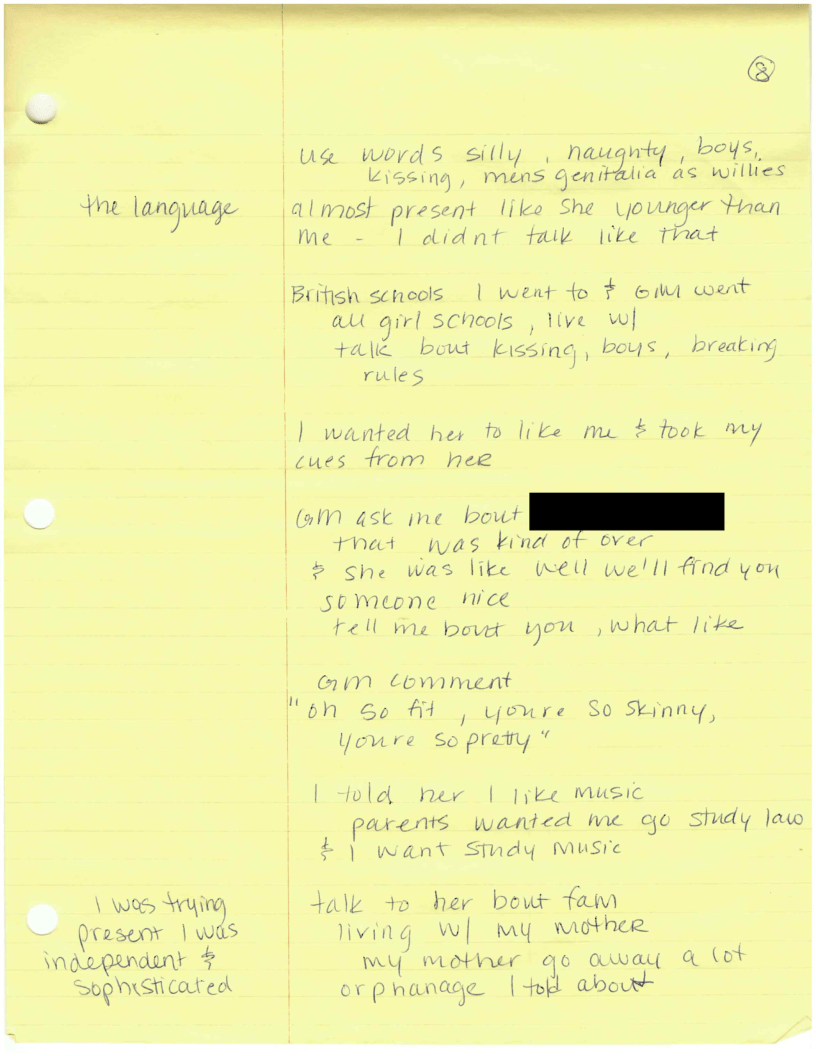 8
use words silly, naughty, boys,
kissing, mens genitalia as willies
the language
almost present like she younger than
me - I didnt talk like that
British schools I went to & GM went
all girl schools, live w/
talk bout kissing, boys, breaking
rules
I wanted her to like me & took my
cues from her
GM ask me bout
that was kind of over
& she was like well we'll find you
someone nice
tell me bout you, what like
GM comment
"oh so fit, youre so skinny,
youre so pretty"
I told her I like music
parents wanted me go study law
& I want study music
I was trying
present I was
independent &
sophisticated
talk to her bout fam
living w/ my mother
my mother go away a lot
orphanage I told about